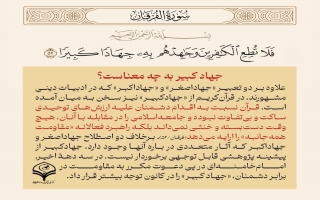 سُورَةُ الْفُرْقَانِ
فَلَا تُطِعِ الْكَافِرِينَ وَجَاهِدْهُم بِهِ جِهَادًا كَبِيرًا ﴿۵۲﴾
جهاد کبیر به چه معناست؟
علاوه بر دو تعبیر «جهاد اصغر» و «جهاد اکبر» که در ادبیات دینی
مشهورند، در قرآن کریم از «جهاد کبیر» نیز سخن به میان آمده
است. قرآن نسبت به اقدام دشمنان علیه ارزش‌های توحیدی
ساکت و بی‌تفاوت نبوده و جامعه اسلامی را در مقابله با آنان، هیچ
وقت دست بسته و خنثی نمی‌داند بلکه راهبرد فعالانه «مقاومت
همه جانبه» را ارایه می‌دهد (فرقان/۵۲). برخلاف دو اصطلاح جهاد اصغر و
جهاد اکبر که آثار متعددی در باره آنها وجود دارد، جهاد کبیر از
پیشینه پژوهشی قابل توجهی برخوردار نیست. در سه دهۀ اخیر،
امام خامنه‌ای در پی دعوت مکرر به مقاومت در
برابر دشمنان، «جهاد کبیر» را در کانون توجه بیشتر قرار داد.